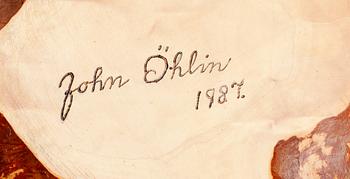 John Öhlin
1987.